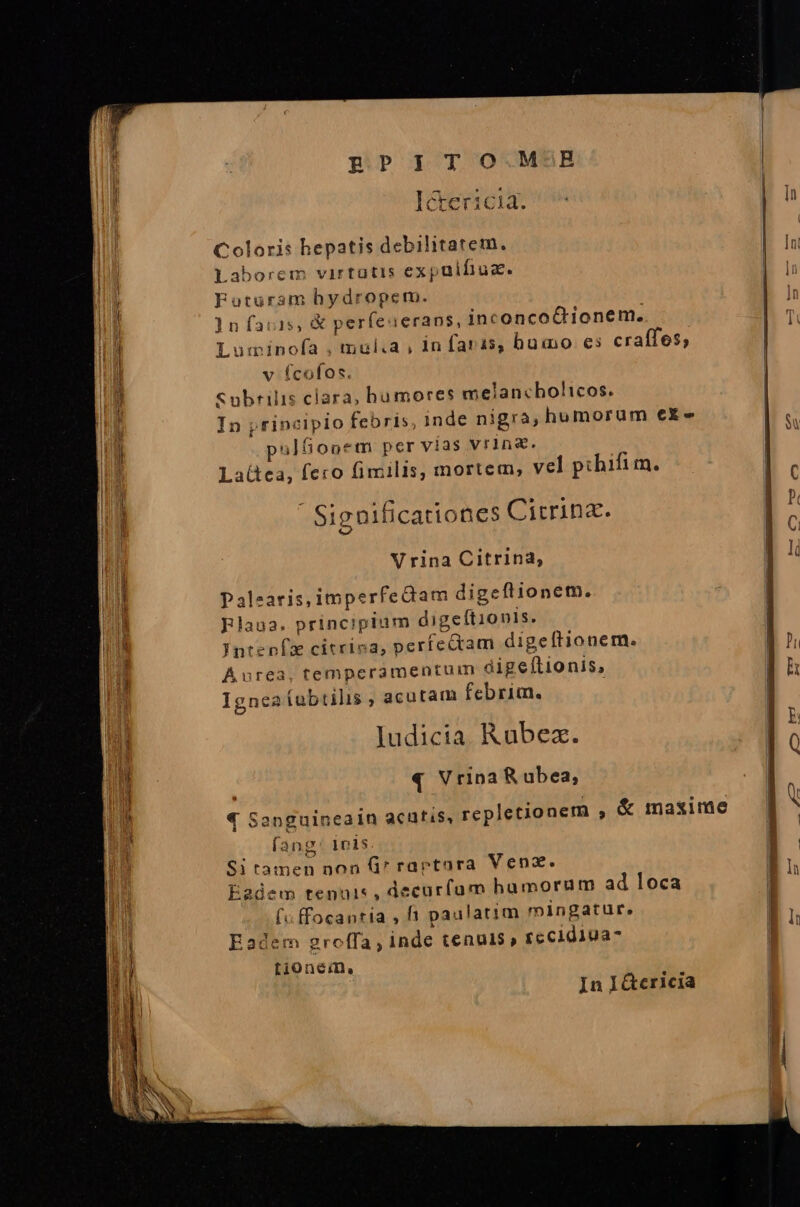 EPITOMÆ
Ictericia.
Coloris hepatis debilitatem.
Laborem virtutis expulſiuæ.
Futuram hydropem.
In ſanis, & perſeuerans, inconcoctionem.
Luminoſa, multa, in ſanis, humores craſſes,
viſcoſos.
Subtilis clara, humores melancholicos.
In principio febris, inde nigra, humorum ex-
pulſionem per vias vrinæ.
Lactea, ſero ſimilis, mortem, vel pthiſim.
Significationes Citrinæ.
Vrina Citrina,
Palearis, imperfectam digeſtionem.
Flaua. principium digeſtionis.
Intenſæ citrina, perfectam digeſtionem.
Aurea, temperamentum digeſtionis,
Ignea ſubtilis, acutam febrim.
Iudicia Rubeæ.
¶ Vrina Rubea,
¶ Sanguinea in acutis, repletionem, & maxime
ſanguinis.
Si tamen non ſit raptura Venæ.
Eadem tenuis, decurſum humorum ad loca
ſuffocantia, ſi paulatim mingatur.
Eadem groſſa, inde tenuis, recidiua-
tionem,
In Ictericia